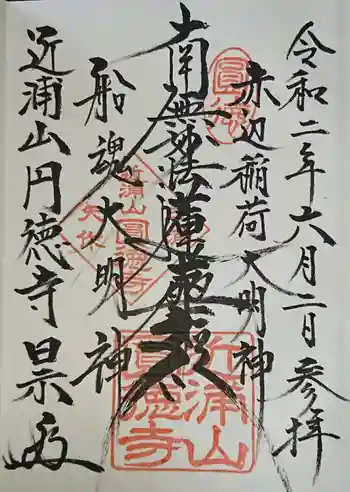 令和二年六月二日参拝
赤辺稲荷大明神
南無妙法蓮華経
船魂大明神
近浦山円徳寺
圓徳
近浦山圓徳寺
近浦山
圓徳寺